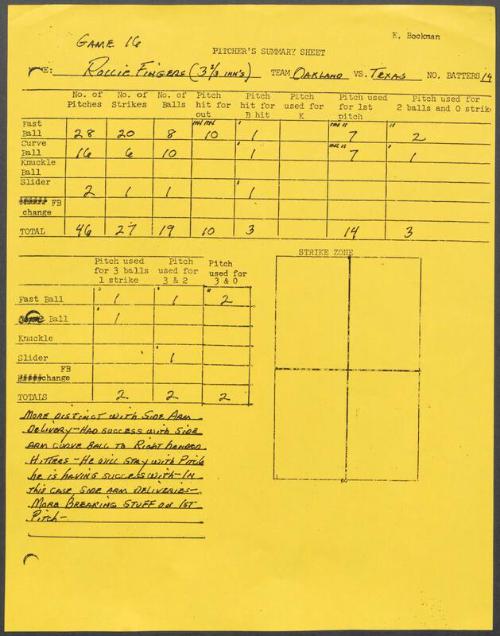 E. Bockman
GAME 16
PITCHER'S SUMMARY SHEET
E: ROLLIE FINGERS (3 2/3 INN'S) TEAM OAKLAND VS. TEXAS NO. BATTERS 14
No. of Pitches No. of Strikes No. of Balls Pitch hit for out Pitch hit for B hit Pitch used for K Pitch used for 1st pitch Pitch used for 2 balls and 0 strike
Fast Ball 28 20 8 10 1 7 2
Curve Ball 16 6 10 1 7 1
Knuckle Ball
Slider 2 1 1 1
FB change
TOTAL 46 27 19 10 3 14 3
Pitch used for 3 balls 1 strike Pitch used for 3 & 2 Pitch used for 3 & 0
STRIKE ZONE
Fast Ball 1 1 2
Ball 1
Knuckle
Slider 1
FB change
TOTALS 2 2 2
MORE DISTINCT WITH SIDE ARM
DELIVERY - HAD SUCCESS WITH SIDE
ARM CURVE BALL TO RIGHT HANDED
HITTERS - HE WILL STAY WITH PITCH
he is HAVING SUCCESS WITH - IN
THIS CASE SIDE ARM DELIVERIES -
MORE BREAKING STUFF ON 1ST
PITCH -